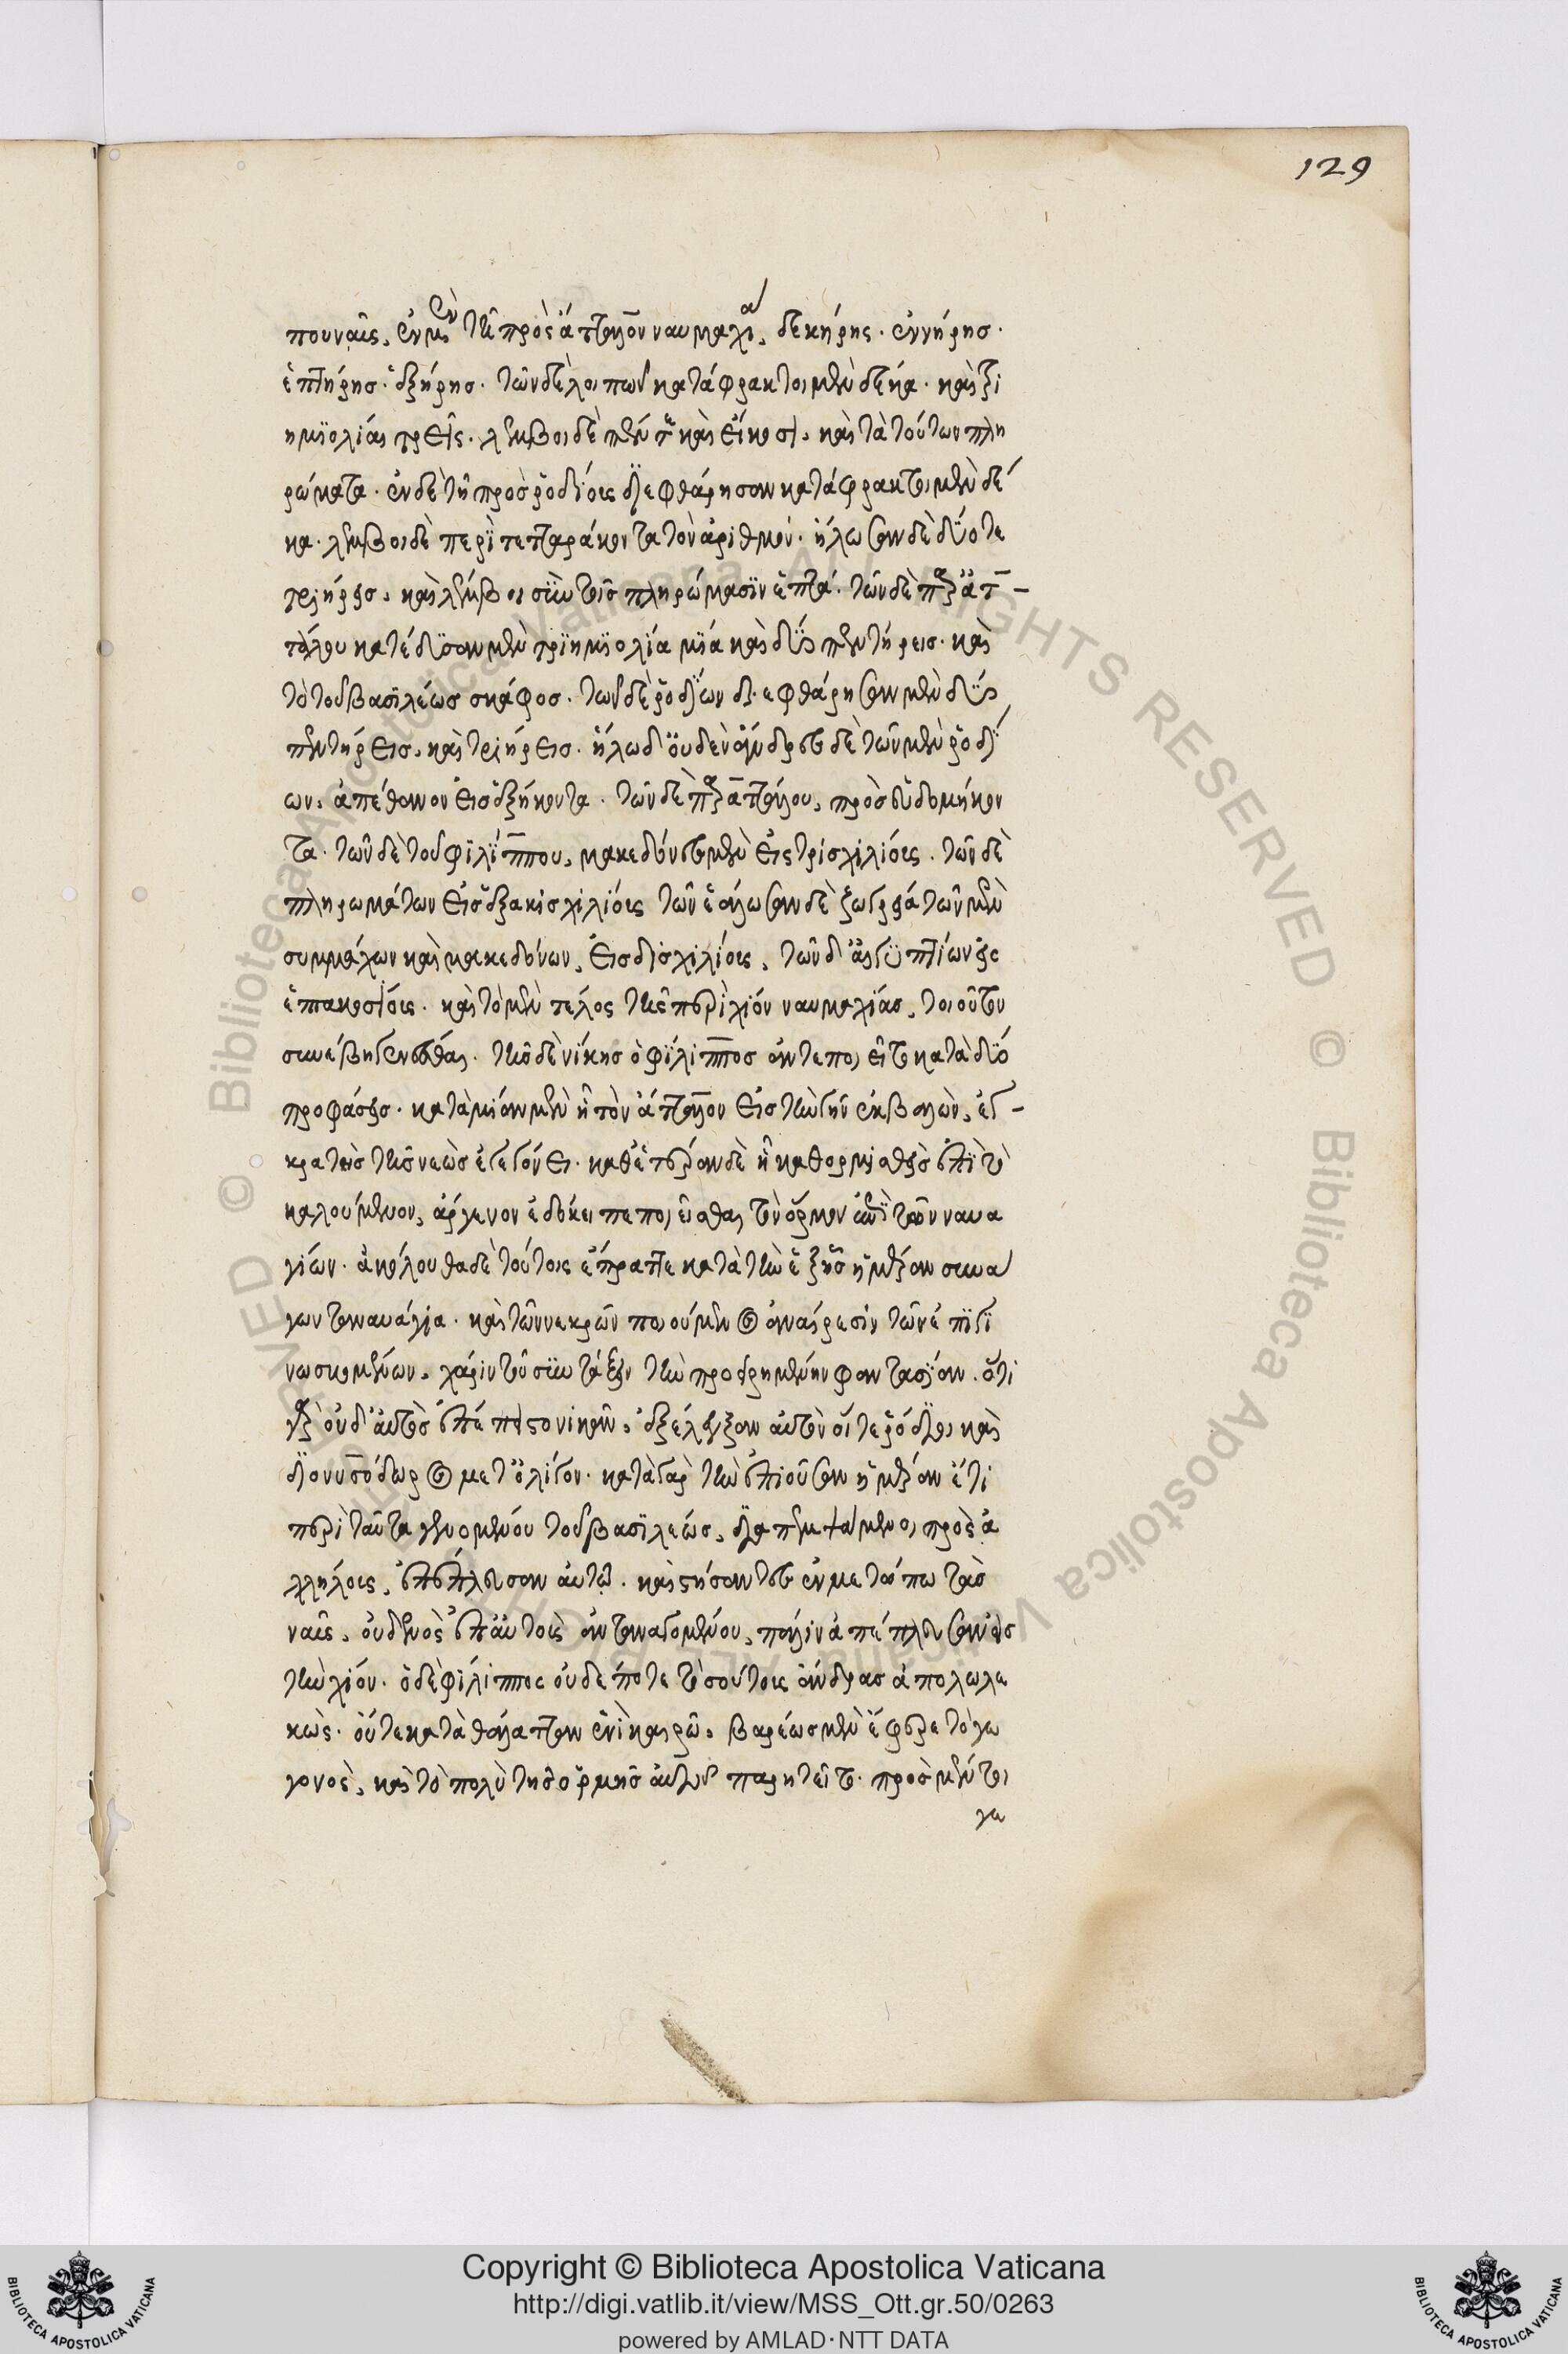 που ναῦς, ἐν μὲν τῆ πρὸς ἄτταλον ναυμαχία, δεκήρης. ἐννήρησ.
ἑπτήρησ. ἑξήρησ. τῶν δὲ λοιπῶν κατάφρακτοι μὲν δέκα. καὶ ξι
ημϊολίαι τρεῖς. λέμβοι δὲ πέντε καὶ εἴκοσι, καὶ τὰ τούτων πλη
ρώματα. ἐν δὲ τῆ πρὸσ ῥοδίους διεφθάρησαν κατάφρακτοι μὲν δέ
κα. λέμβοι δὲ περὶ τετταράκοντα τὸν ἀριθμόν. ἥλωσαν δὲ δύο τε
τριήρεισ, καὶ λέμβοι σὺν τοῖσ πληρώμασϊν ἑπτά. τῶν δὲ παρὰ ἀτ-
τάλου κατέδυσαν μὲν τρϊημϊολία μϊά καὶ δύο πεντήρεισ. καὶ
τὸ τοῦ βασϊλέωσ σκάφοσ. τῶν δὲ ῥοδίων διεφθάρησαν μὲν δύο
πεντήρεισ, καὶ τριήρεισ. ἥλω δ' οὐδὲν ἄνδρεσ δὲ τῶν μὲν ῥοδί
ων, ἀπέθανον εἰσ ἑξήκοντα. τῶν δὲ παρὰ ἀττάλου, πρὸσ ἑβδομήκον
τα. τῶν δὲ τοῦ φϊλίππου, μακεδόνεσ μὲν εἰς τρισχιλίους. τῶν δὲ
πληρωμάτων εἰσ ἑξακισχιλίους τῶν ἑάλωσαν δὲ ζωγρεία τῶν μὲν
συμμάχων καὶ μακεδόνων, εἰσ δισχιλίους, τῶν δ' αἰγυπτίων εἰς
ἑπτακοσίους. καὶ τὸ μὲν τέλος τῆς περὶ χίον ναυμαχίασ, τοιοῦτον
συνέβη γενέσθαι. τῆσ δὲ νίκησ ὁ φϊλίπποσ ἀντεποιεῖτο κατὰ δύο
προφάσεισ. κατὰ μίαν μὲν ἧ τὸν ἄτταλον εἰσ τὴν γῆν ἐκβαλὼν, ἐγ-
κρατὴσ τῆσ νεὼσ ἐγεγόνει. καθ' ἑτέραν δὲ ἧ καθορμισθεὶσ ἐπὶ τὸ
καλούμενον, ἀργενον ἐδόκει πεποιεῖσθαι τὸν ὅρμον ἐπὶ τῶν ναυα
γίων. ἀκόλουθα δὲ τούτοις ἔπραττε κατὰ τὴν ἑξῆσ ἡμέραν συνά
γων τὰ ναυάγια. καὶ τῶν νεκρῶν ποιούμενος ἀναίρεσιν τῶν ἐπϊγϊ
νωσκομένων, χάριν τοῦ συντάξειν τὴν προειρημένην φαντασίαν. ὅτι
γὰρ οὐδ' αὐτὸσ ἐπέπειστο νικᾶν, ἐξέλεγξαν αὐτὸν οἵ τε ῥόδιοι καὶ
διονυσόδωρος μετ' ὀλίγον. κατὰ γὰρ τὴν ἐπιοῦσαν ἡμέραν ἔτι
περὶ ταῦτα γενομένου τοῦ βασϊλέωσ, διαπεμψάμενοι πρὸς ἀ
λλήλους, ἐπέπλευσαν αὐτῶ. καὶ στήσαντεσ ἐν μετώπω τὰσ
ναῦς, οὐδενὸς ἐπ' αὐτοὺς ἀνταναγομένου, πάλιν ἀπέπλευσαν εἰσ
τὴν χίον. ὁ δὲ φίλιππος οὐδέποτε τοσούτους ἄνδρασ ἀπολωλε
κὼς. οὔτε κατὰ θάλατταν ἑνὶ καιρῶ, βαρέωσ μὲν ἔφερε τὸ γε
γονὸς, καὶ τὸ πολὺ τῆσ ὁρμῆσ αὐτοῦ παρητεῖτο. πρὸσ μέν τοι
γε
129
Copyright © Biblioteca Apostolica Vaticana
http://digi.vatlib.it/view/MSS_Ott.gr.50/0263
powered by AMLAD·NTT DATA